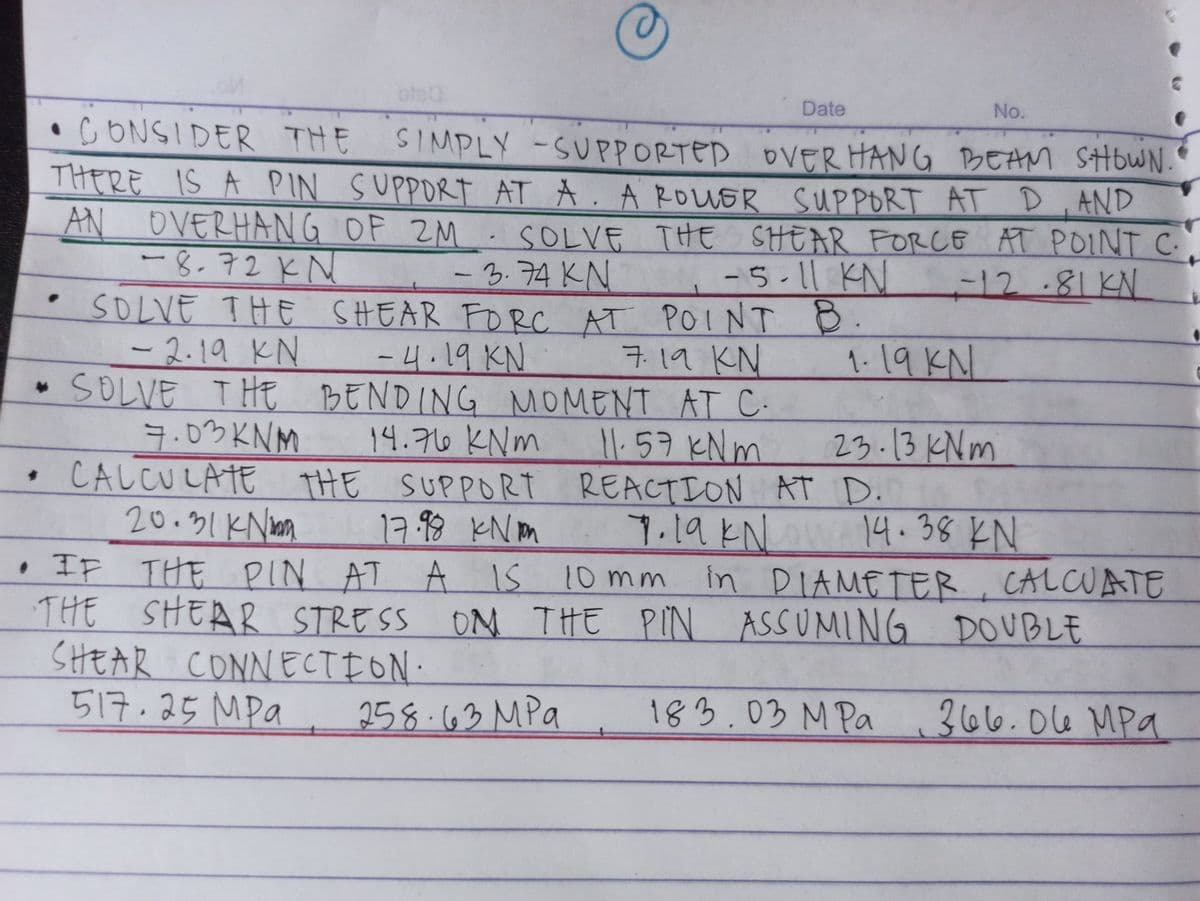 Date No.
• CONSIDER THE SIMPLY -SUPPORTED OVERHANG BEAM SHOWN.
THERE IS A PIN SUPPORT AT A. A ROLLER SUPPORT AT D, AND
AN OVERHANG OF 2M. SOLVE THE SHEAR FORCE AT POINT C.
-8.72 KN, -3.74 KN, -5.11 KN, -12.81 KN
• SOLVE THE SHEAR FORC AT POINT B.
-2.19 KN -4.19 KN 7.19 KN 1.19 KN
• SOLVE THE BENDING MOMENT AT C.
7.03KNM 14.76 KNm 11.57 KNm 23.13 KNm
• CALCULATE THE SUPPORT REACTION AT D.
20.31 KN 17.98 KN 7.19 KN 14.38 KN
• IF THE PIN AT A IS 10 mm in DIAMETER, CALCUATE
THE SHEAR STRESS ON THE PIN ASSUMING DOUBLE
SHEAR CONNECTION.
517.25 MPa, 258.63 MPa, 183.03 MPa, 366.06 MPa